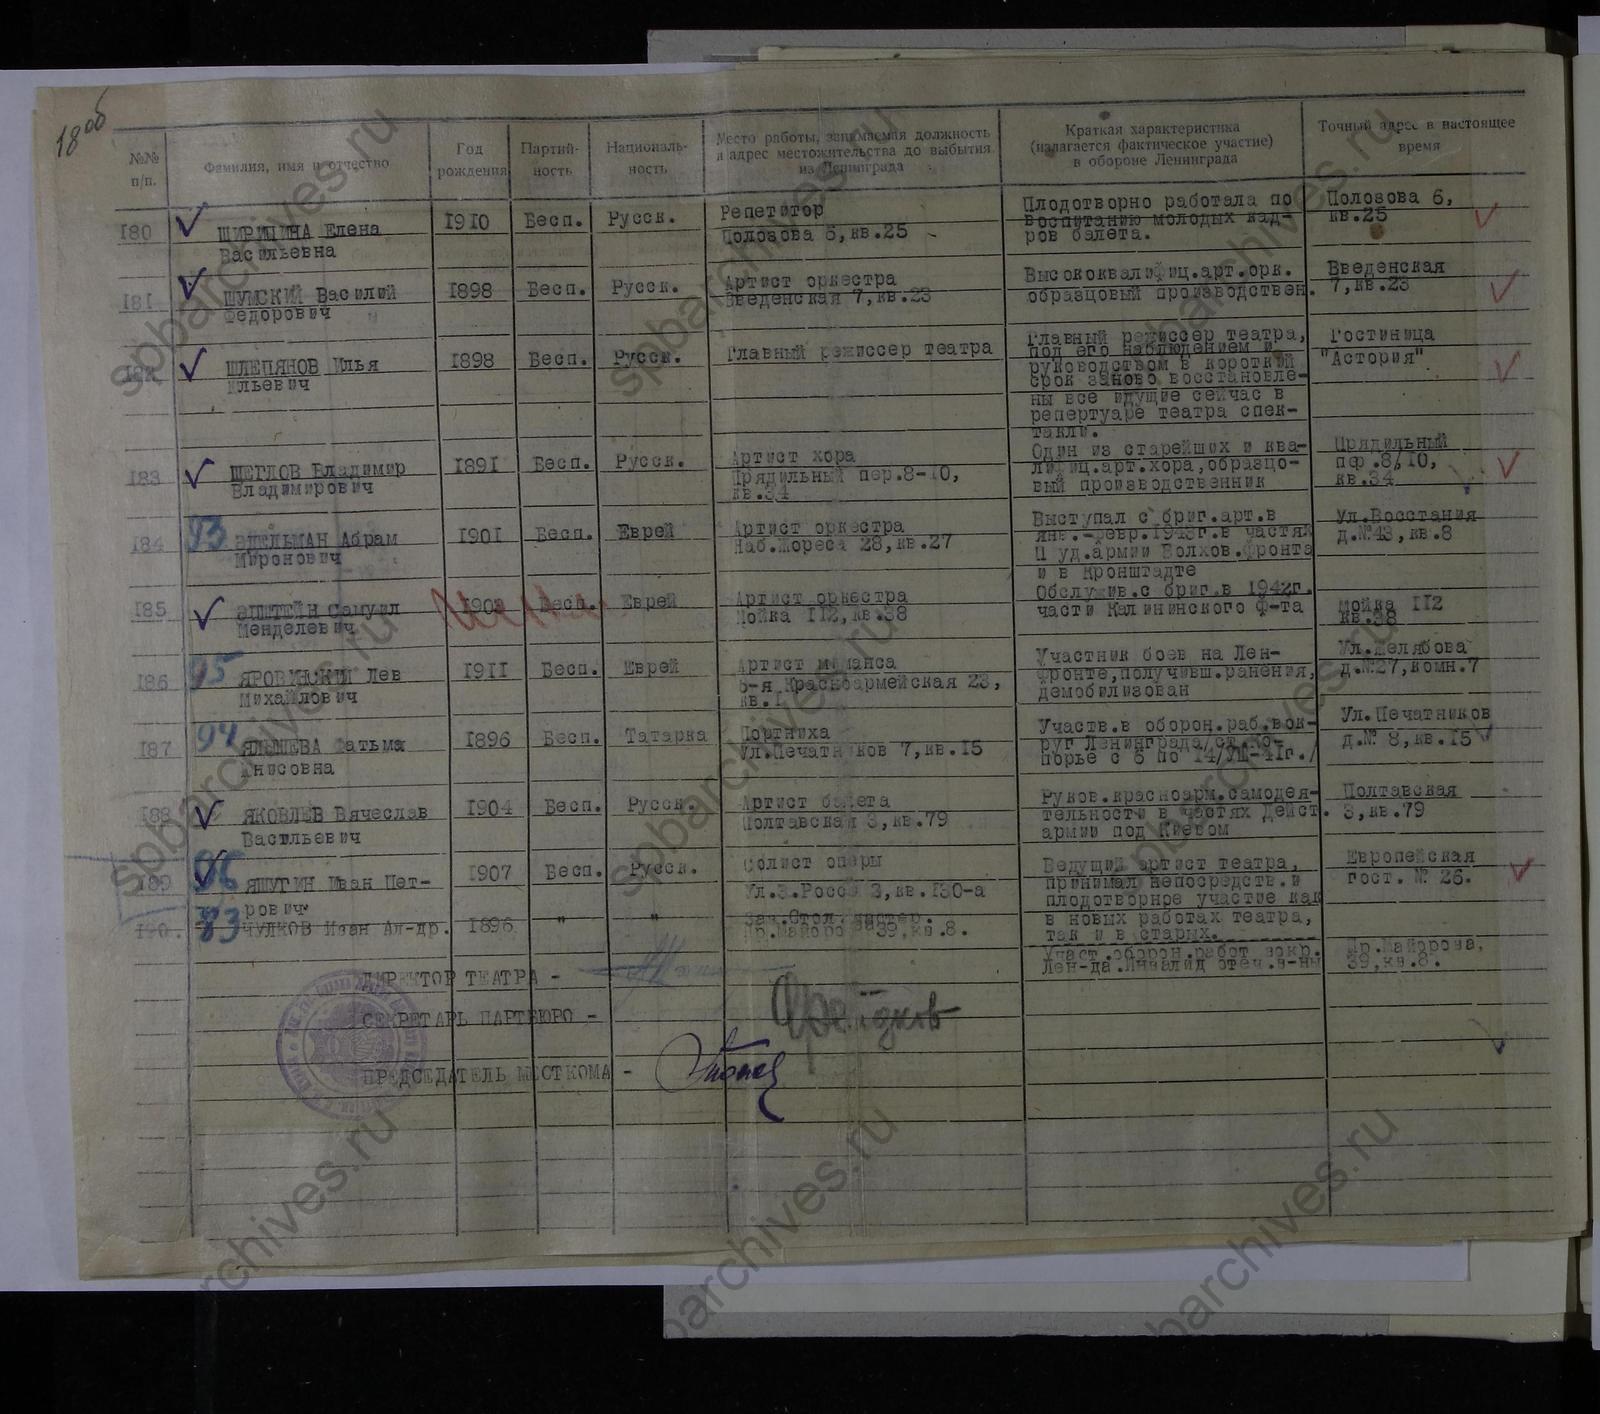 18об
№№ п/п. Фамилия, имя и отчество Год рождения Партий-ность Националь-ность Место работы, занимаемая должность и адрес местожительства до выбытия из Ленинграда Краткая характеристика (излагается фактическое участие) в обороне Ленинграда Точный адрес в настоящее время
180 ШИРИПИНА Елена 1910 Бесп. Русск. Репетитор Плодотворно работала по Полозова 6,
Васильевна Полозова 6,кв.25 воспитанию молодых кад- кв.25
ров балета.
181 ШУМСКИЙ Василий 1898 Бесп. Русск. Артист оркестра Высококвалифиц.арт.орк. Введенская
Федорович Введенская 7,кв.23 образцовый производствен. 7,кв.23
182 ШЛЕПЯНОВ Илья 1898 Бесп. Русск. Главный режиссер театра Главный режиссер театра, Гостиница
Ильевич под его наблюдением и "Астория"
руководством в короткий
срок заново восстановле-
ны все идущие сейчас в
репертуаре театра спек-
такли.
183 ЩЕГЛОВ Владимир 1891 Бесп. Русск. Артист хора Один из старейших и ква- Прядильный
Владимирович Прядильный пер.8-10, лифиц.арт.хора,образцо- пер.8/10,
кв.34 вый производственник кв.34
184 93 ЭДЕЛЬМАН Абрам 1901 Бесп. Еврей Артист оркестра Выступал с бриг.арт.в Ул.Восстания
Миронович Наб.Жореса 28,кв.27 янв.-февр.1943г.в частях д.№43,кв.8
П уд.армии Волхов.фронта
и в Кронштадте
185 ЭПШТЕЙН Самуил Бесп. Еврей Артист оркестра Обслужив.с бриг.в 1942г. Мойка 112
Менделевич Мойка 112,кв.38 части Калининского Ф-та кв.38
186 95 ЯРОВИНСКИЙ Лев 1911 Бесп. Еврей Артист миманса Участник боев на Лен- Ул.Желябова
Михайлович 6-я Красноармейская 23, фронте,получивш.ранения, д.№27,комн.7
кв.1 демобилизован
187 94 ЯЛЫШЕВА Фатьма 1896 Бесп. Татарка Портниха Участв.в оборон.раб.вок- Ул.Печатников
Ул.Печатников 7,кв.15 руг Ленинграда/ст.Ко- д.№ 8,кв.15
порье с 6 по 14/УШ-41г./
188 ЯКОВЛЕВ Вячеслав 1904 Бесп. Русск. Артист балета Руков.красноарм.самодея- Полтавская
Васильевич Полтавская 3,кв.79 тельности в частях Дейст. 3,кв.79
армии под Киевом
189 96 ЯШУГИН Иван Пет- 1907 Бесп. Русск. Солист оперы Ведущий артист театра, Европейская
рович Ул.З.Росси 3,кв.130-а принимал непосредств.и гост. № 26.
плодотворное участие как
в новых работах театра,
так и в старых.
190. 83 ЧУЛКОВ Иван Ал-др. 1896 " " Зав.Стол.мастер. Участ.оборон.работ вокр. Пр.Майорова,
Пр.Майорова 39,кв.8. Лен-да.Инвалид отеч.в-ны 39,кв.8.
ДИРЕКТОР ТЕАТРА -
СЕКРЕТАРЬ ПАРТБЮРО -
ПРЕДСЕДАТЕЛЬ МЕСТКОМА -
spbarchives.ru